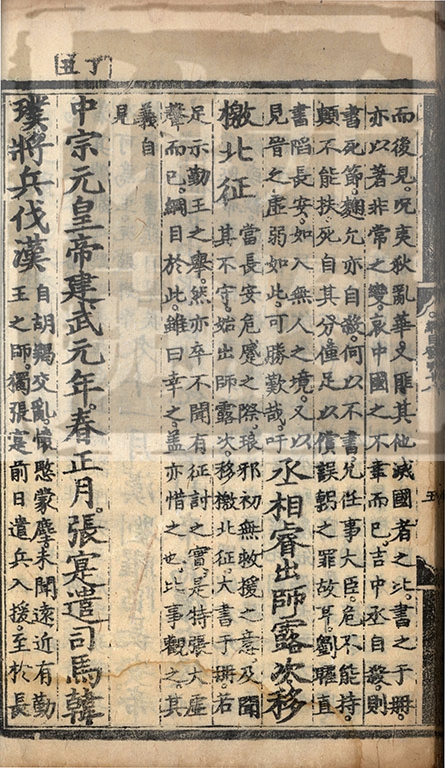 而後見。况夷狄亂華。又匪其他滅國者之比。書之于冊。
亦以著非常之變。哀中國之不幸而已。吉中丞自殺。則
書死節。麴允亦自殺。何以不書。允任事大臣。危不能持。
顛不能扶。死自其分。僅足以償誤之罪故耳。劉曜直
書陷長安。如入無人之境。又以
見晉之虛弱如此。可勝歎哉。吁
丞相睿出師露次移
檄北征
當長安危蹙之際。琅邪初無救援之意。及聞
其不守。始出師露次。移檄北征。大書于冊。若
足示勤王之舉。然亦卒不聞有征討之實。是特張大虛
聲而已。綱目於此。雖曰幸之。盖亦惜之也。比事觀之。其
義自
見
丁丑
中宗元皇帝建武元年。春正月。張寔遣司馬韓
璞將兵伐漢
自胡羯交亂。懷愍蒙塵。未聞遠近有勤
王之師。獨張寔前日遣兵入援。至於長
五